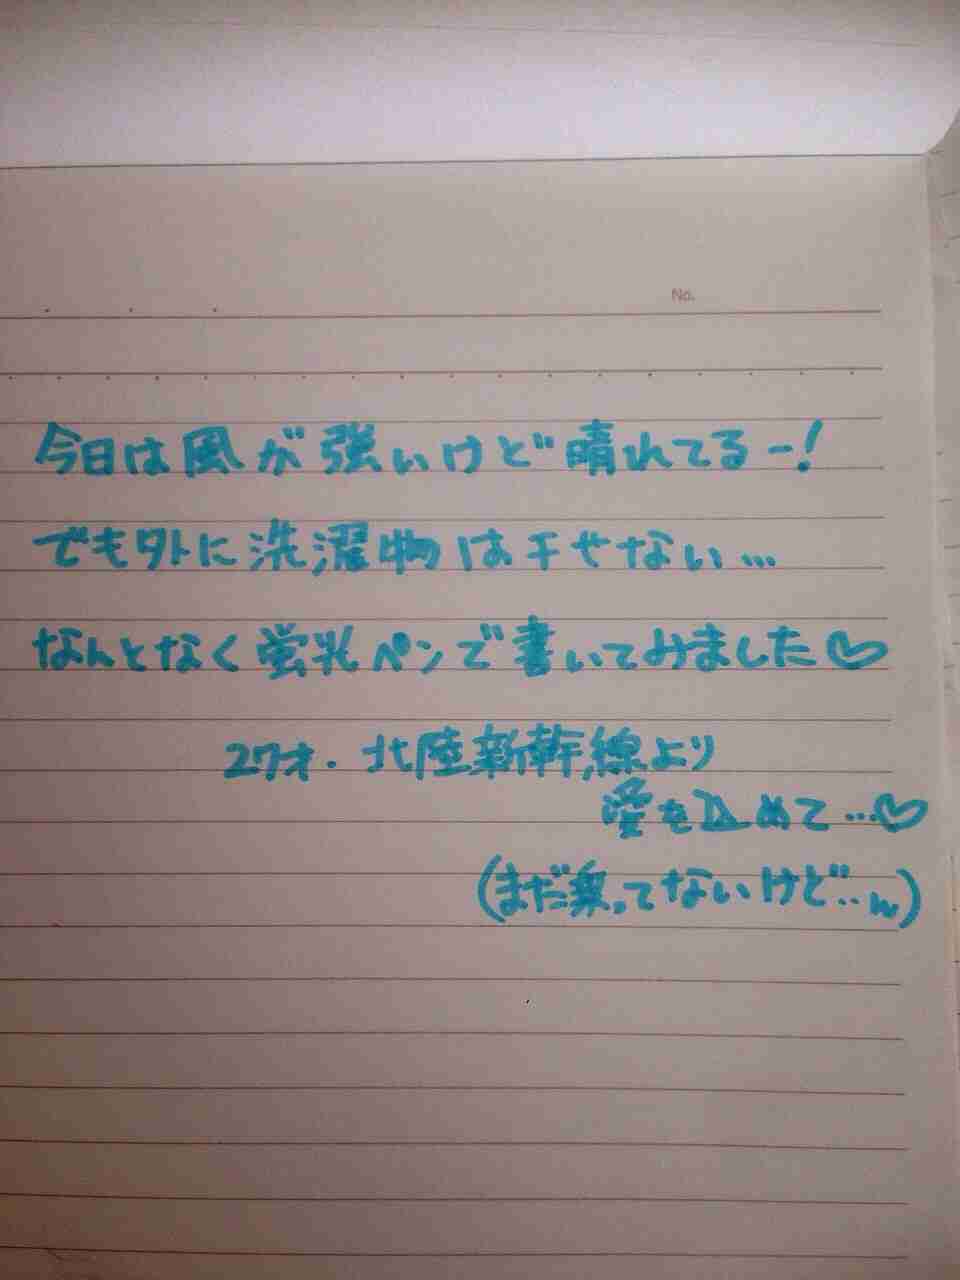 No.
今日は風が強いけど晴れてるー!
でも外に洗濯物は干せない…
なんとなく蛍乳ペンで書いてみました♡
27才. 北陸新幹線より
愛を込めて…♡
(まだ乗ってないけど..w)